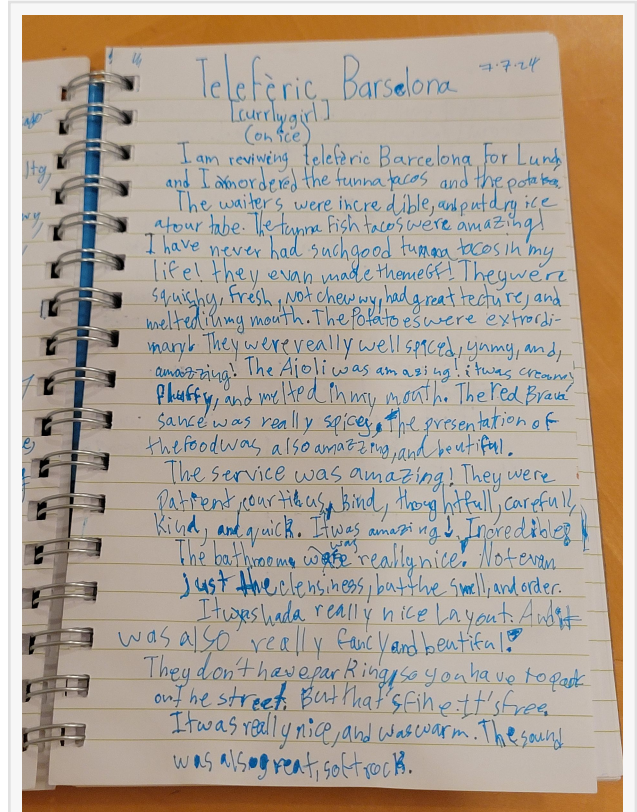 7.7.24
Telefèric Barselona
[currlygirl]
(on ice)
I am reviwing telefèric Barcelona For Lunch
and I ordered the tunna tacos and the potatoes
The waiters were incredible, and put dry ice
at our tabe. The tunna fish tacos were amazing!
I have never had such good tunna tacos in my
life! they evan made them GF! They were
squishy, fresh, not chewwy, had great tecture, and
melted in my mouth. The Potatoes were extrordi-
mary! They were really well spiced, yumy, and,
amazzing! The Aioli was amazing! it was creamy,
fluffy, and melted in my mouth. The red Brava
sauce was really spicey, the presentation of
the food was also amazzing, and beutiful.
The service was amazing! They were
Patient, courtious, kind, thoughtfull, carefull,
Kind, and quick. It was amazing! Incredible!
The bathrooms was really nice! Not evan
just the clensiness, but the smell, and order.
It was had a really nice Layout. And it
was also really fancy and beutiful!
They don't have parking, so you have to park
on the street. But that's fine. It's free.
It was really nice, and was warm. The sound
was also great, soft rock.